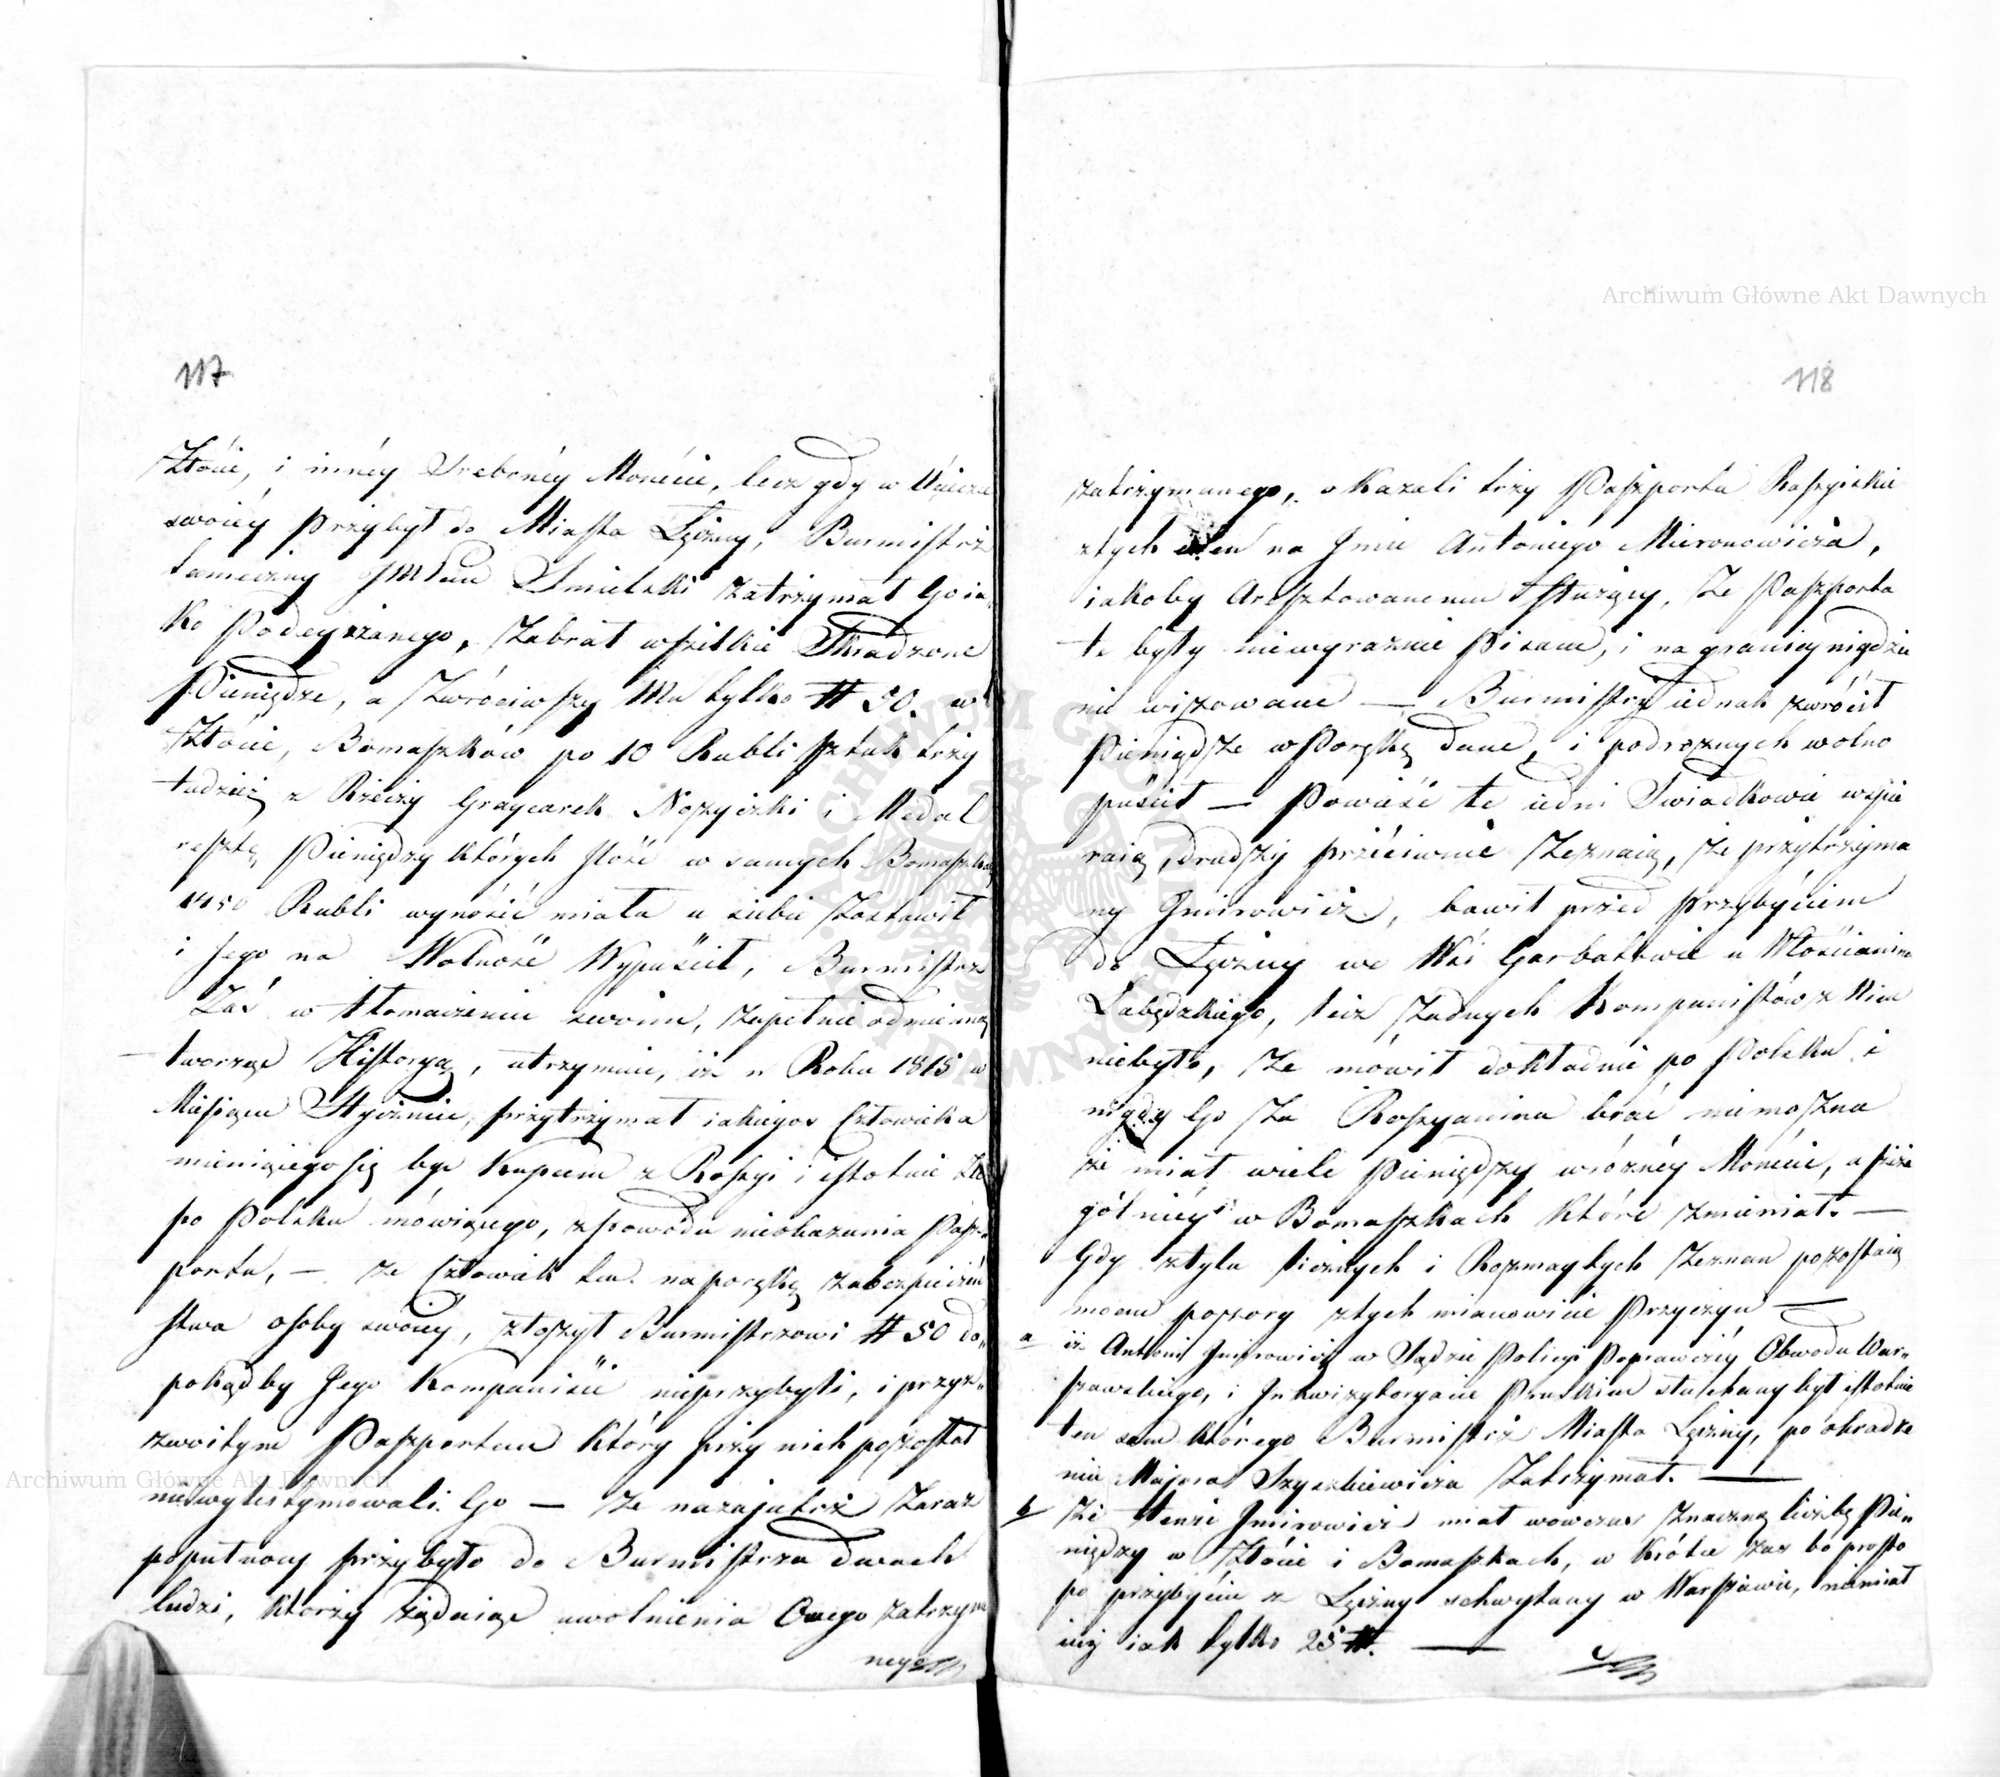 117
Złócie, i innéy Srebrnéy Monécie, lecz gdy w Ucieczce
swoiéy przybył do Miasta Łęczny, Burmistrz
tameczny JMPan Smielski zatrzymał Go ia„
ko Podeyrzanego, Zabrał wszelkie Skradzone
Pieniądze, a Zwróciwszy Mu tylko # 50. w
Złócie, Bomaszków po 10 Rubli sztuk trzy
tudzież z Rzeczy Graycarek Nożyczki i Medal
resztę, Pieniędzy których Ilość w samych Bomaszkach
1450 Rubli wynosić miała u siebie Zostawił
i Jego na Wolność Wypuścił, Burmistrz
Zaś w tłomaczeniu swoim, zupełnie odmienną
tworząc Historyą, utrzymuie, iż w Roku 1815 w
Miesiącu Styczniu, przytrzymał iakiegos Człowieka
mieniącego się byc Kupcem z Rossyi i istotnie Zle
po Polsku mówiącego, z powodu nieokazania Pasz„
portu, — że Człowiek ten na porękę zabezpieczeń
stwa osoby swoiéy, złożył Burmistrzowi # 50 do„
pokądby Jego Kompaniści nieprzybyli, i przyz„
zwoitym Paszportem który przy nich pozostał
niewylegitymowali Go — że nazajutrz zaraz
popułnocy przybyło do Burmistrza dwoch
ludzi, którzy żądaiąc uwolnienia Onego zatrzym
nego
118
zatrzymanego, okazali trzy Paszporta Rossyiskie
ztych ieden na Imie Antoniego Mieronowicza,
iakoby Aresztowanemu służący, że Paszporta
te były niewyraźnie Pisane, i na granicy nigdzie
nie wizowane — Burmistrz iednak zwrócił
Pieniądze w Porękę dane, i podrożnych wolno
puścił — Powieść tę iedni Swiadkowie wspie
raią, drudzy przéciwnie Zeznaią, że przytrzyma
ny Gnirowicz, bawił przed Przybyciem
do Łęczny we Wsi Garbatowie u Włościanina
Łabędzkiego, lecz żadnych Kompanistów z Nim
niebyło, że mówił dokładnie po Polsku i
nigdy Go za Rossyanina brać niemożna
że miał wiele Pieniędzy w różnéy Monécie, a szcze
gólniéy w Bomaszkach które zmieniał. —
Gdy ztylu licznych i Rozmaytych Zeznan pozostaią
mocne pozory ztych mianowicie Przyczyn —
a iż Antoni Gnirowicz w Sądzie Policyi Poprawczéy Obwodu War„
szawskiego, i Inkwizytoryacie Pruskim słuchany był istotnie
ten sam którego Burmistrz Miasta Łęczny, po okradze
niu Majora Szyszkiewicza Zatrzymał. —
b że tenże Gnirowicz miał wowczas Znaczną liczbę Pie„
niędzy w Złócie i Bomaszkach, w krótce zas bo prosto
po przybyciu z Łęczny schwytany w Warszawie, niemiał
iuż iak tylko 25 #. —